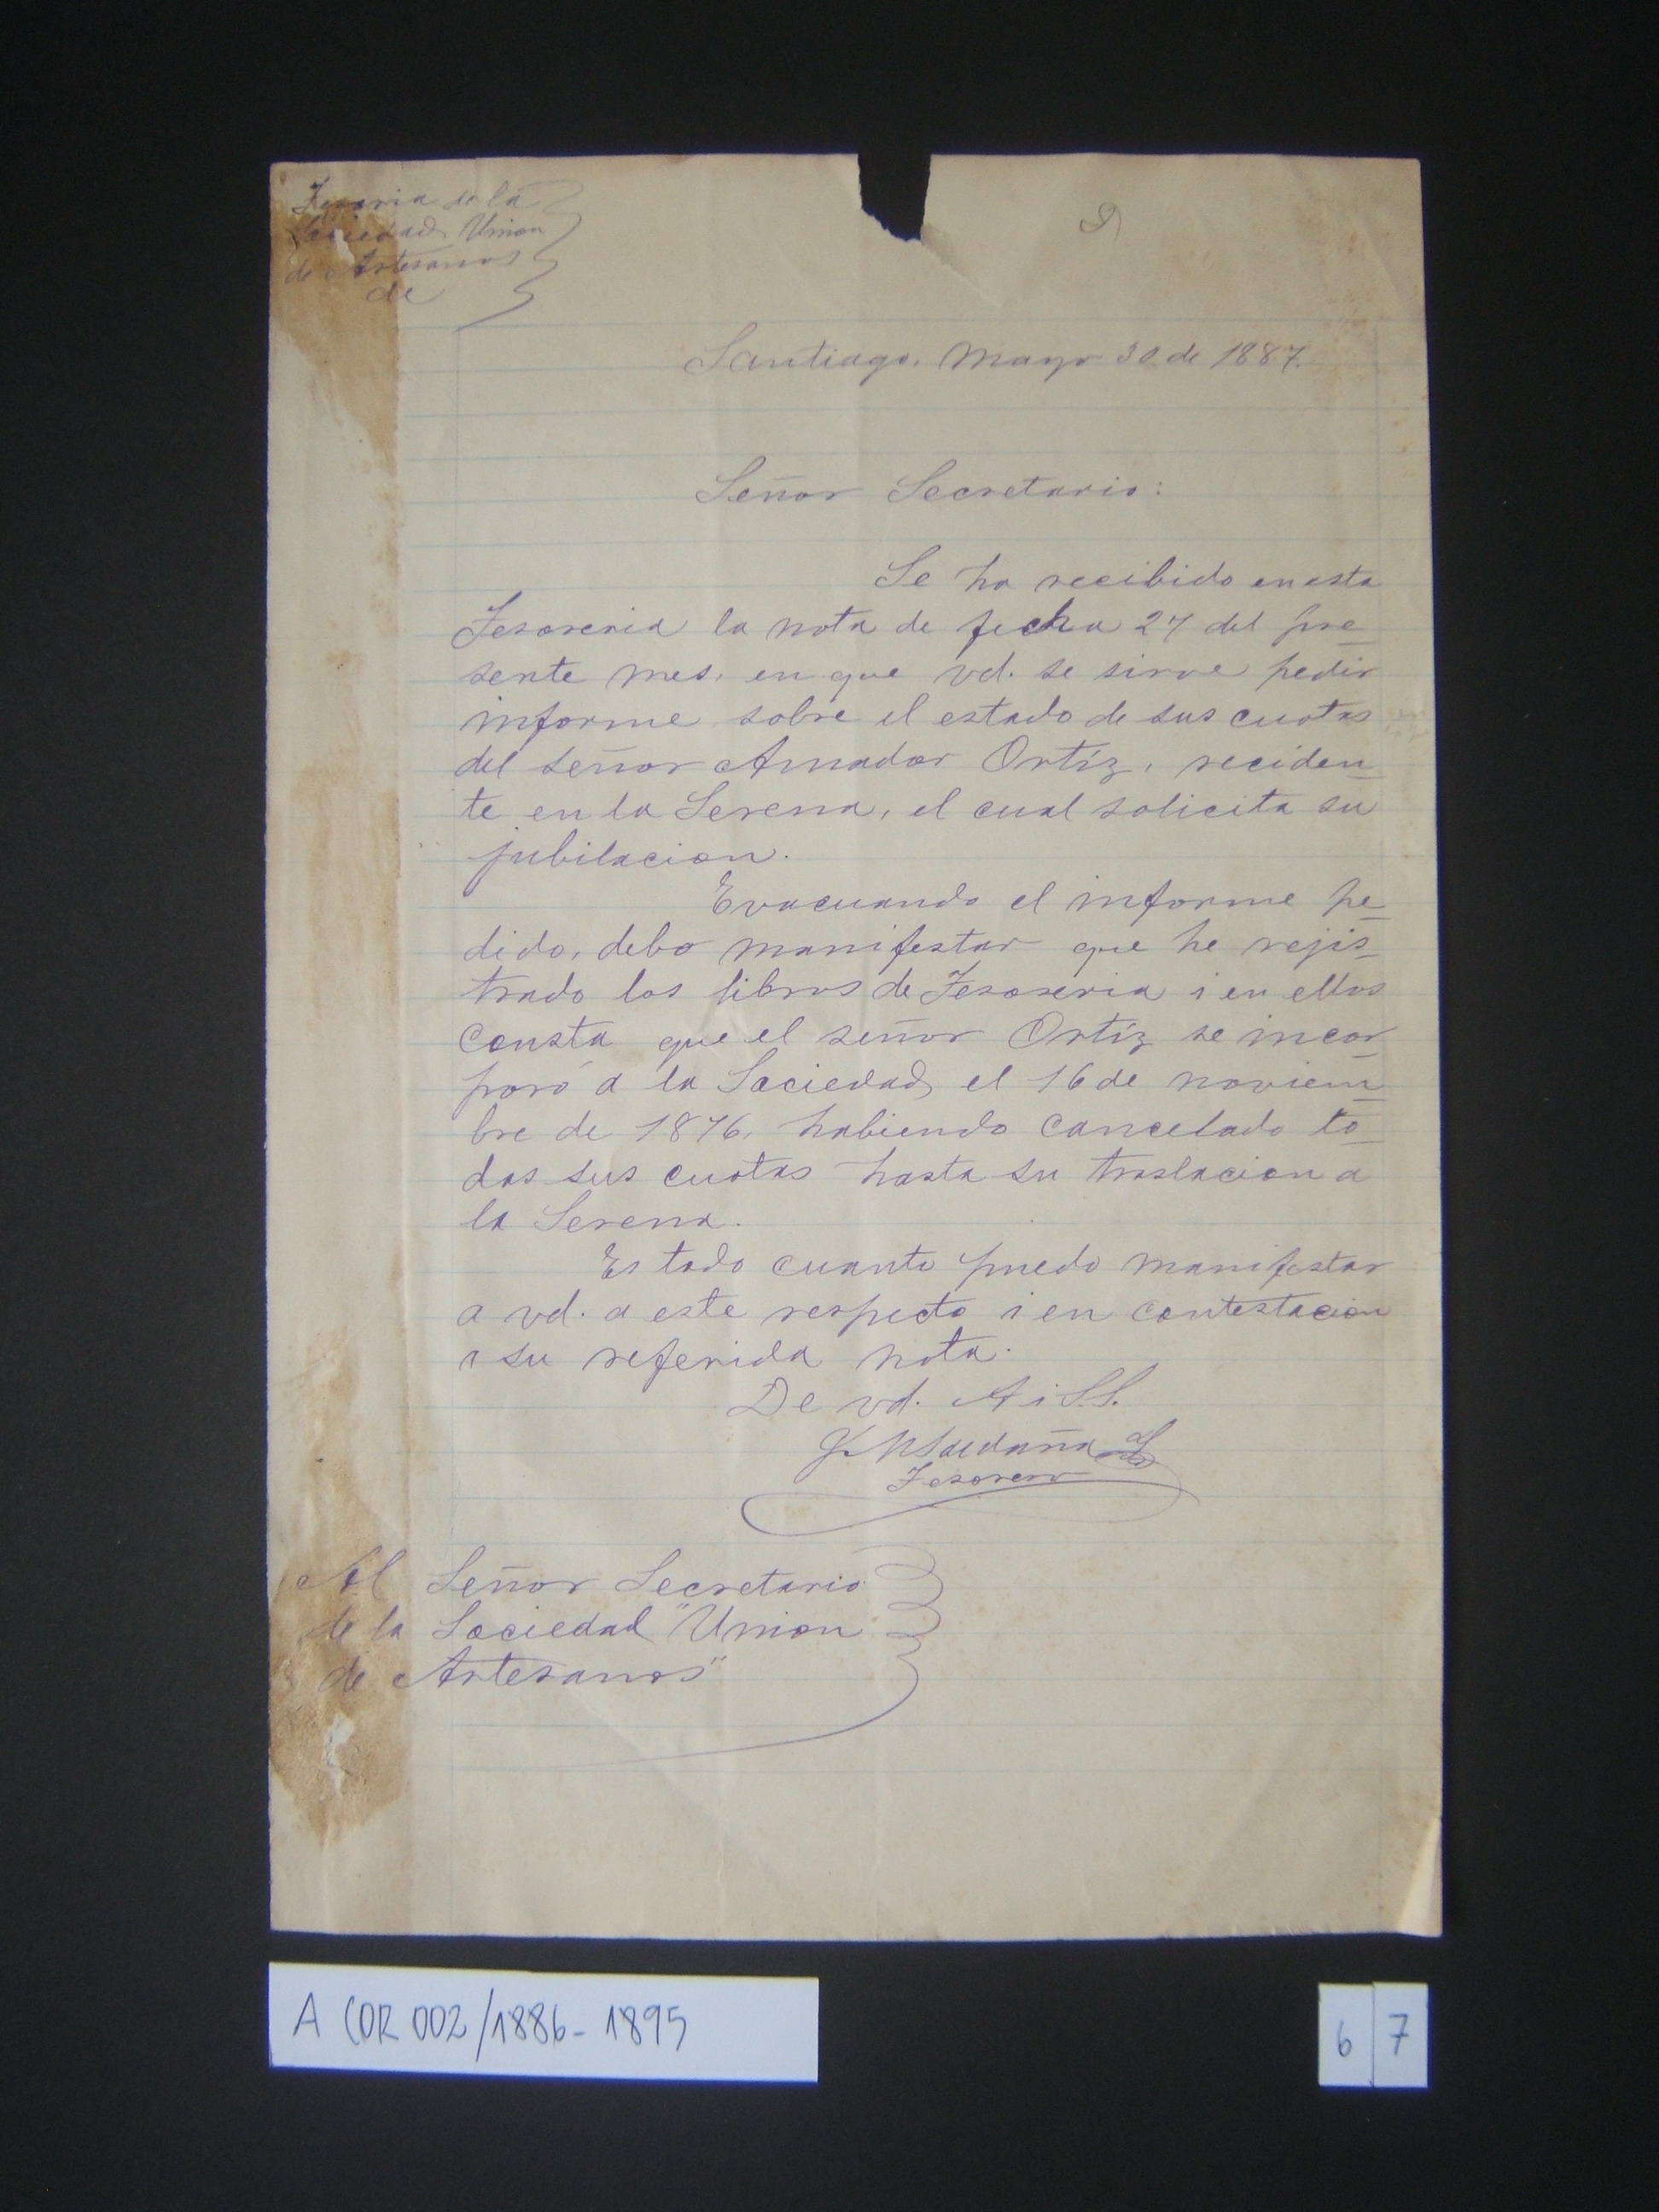 Tesoria de la
Sociedad Union
de Artesanos
de
9
Santiago, Mayo 30 de 1887.
Señor Secretario:
Se ha recibido en esta
Tesoreria la nota de fecha 27 del pre
sente mes, en que vd. se sirve pedir
informe sobre el estado de sus cuotas
del señor Amador Ortíz, reciden
te en la Serena, el cual solicita su
jubilacion.
Evacuando el informe pe
dido, debo manifestar que he rejis
trado los libros de Tesoreria i en ellos
consta que el señor Ortíz se incor
poró a la Sociedad el 16 de noviem
bre de 1876, habiendo cancelado to
das sus cuotas hasta su traslacion a
la Serena.
Es todo cuanto puedo manifestar
a vd. a este respecto i en contestacion
a su referida nota.
De vd. A i S.S.
Saldaña
Tesorero
Al Señor Secretario
de la Sociedad "Union
de Artesanos"
A COR 002/1886-1895
6 7